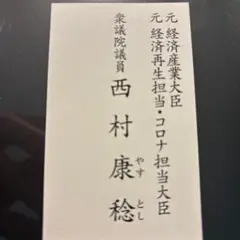 元 経済産業大臣
元 経済再生担当・コロナ担当大臣
衆議院議員
西村康稔
やすとし